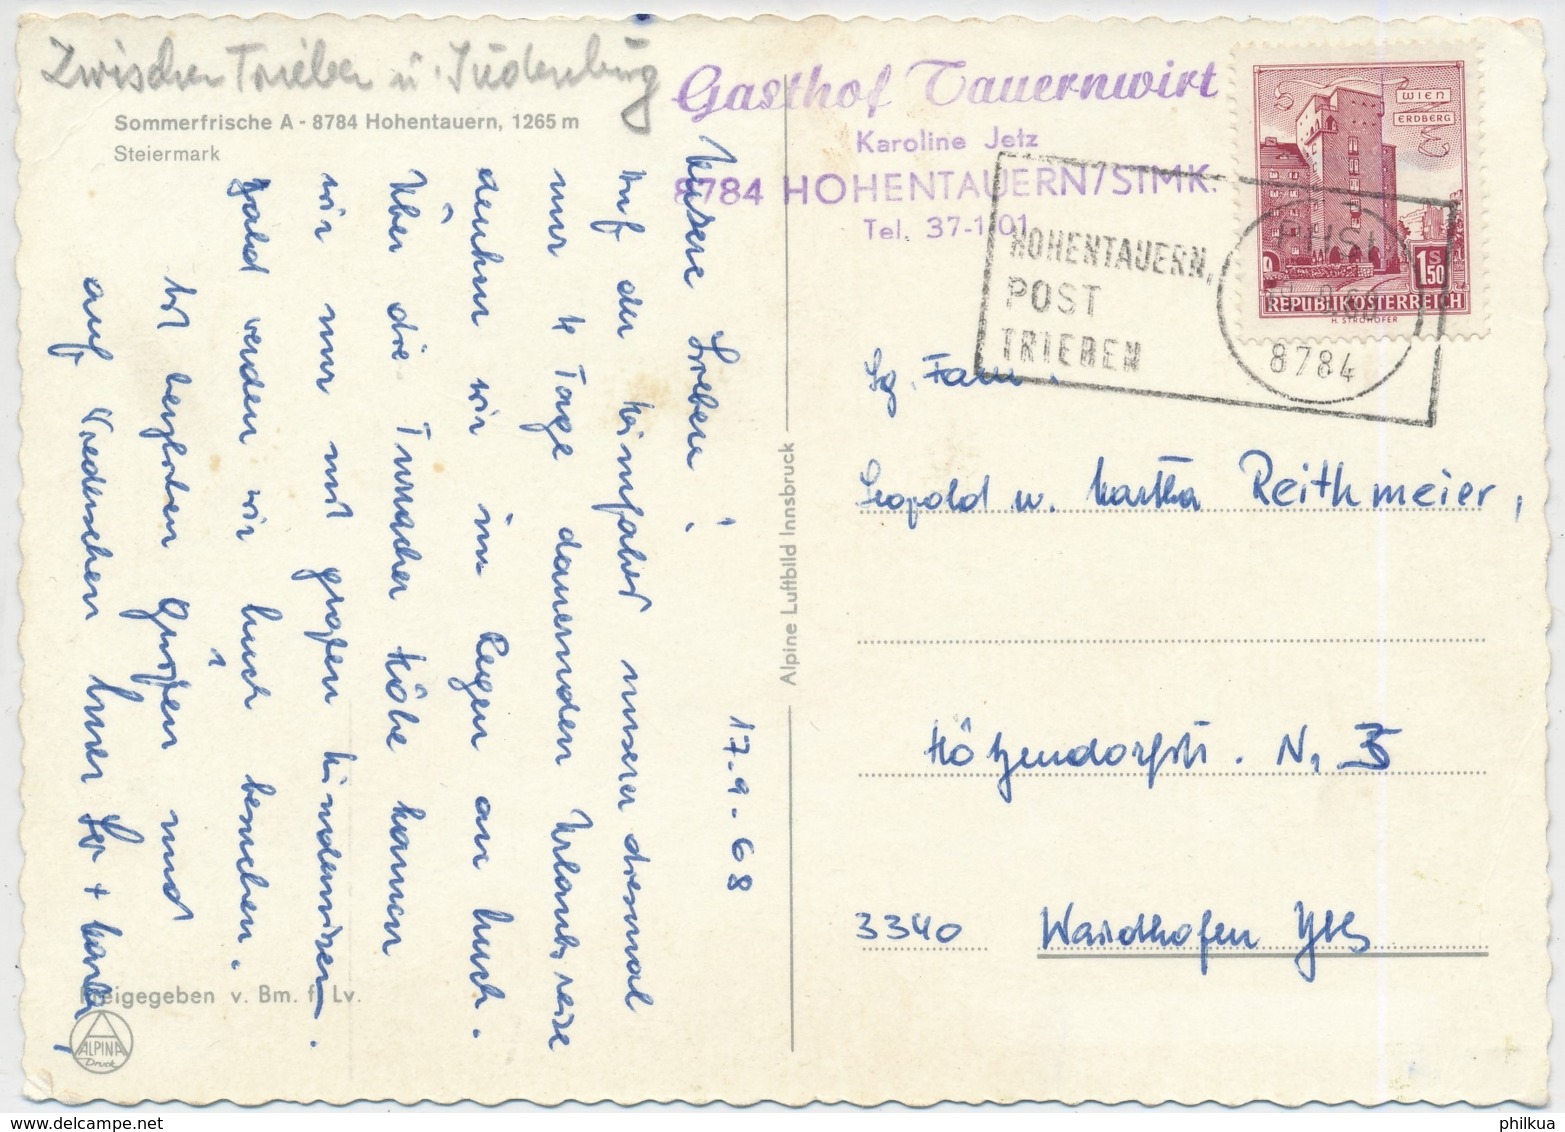 Zwischen Trieben u. Judenburg
Sommerfrische A - 8784 Hohentauern, 1265 m
Steiermark
Gasthof Tauernwirt
Karoline Jetz
8784 HOHENTAUERN/STMK.
Tel. 37-1/01
WIEN
ERDBERG
S
1.50
REPUBLIK ÖSTERREICH
H. STROHOFER
HOHENTAUERN,
POST
TRIEBEN
8784
17.9.68
Unsere Lieben!
Auf der Heimfahrt unserer diesmal
nur 4 Tage dauernden Urlaubsreise
denken wir im Regen an Euch.
Über die Turracher Höhe kamen
wir nur mit großen Hindernissen.
Bald werden wir Euch besuchen.
Mit herzlichen Grüßen und
auf Wiedersehen Euer
Sg. Fam.
Leopold u. Martha Reithmeier,
Hötzendorfstr. Nr. 5
3340 Waidhofen Ybbs
Alpine Luftbild Innsbruck
Freigegeben v. Bm. f. Lv.
ALPINA
Druck
delcampe.net
philkua